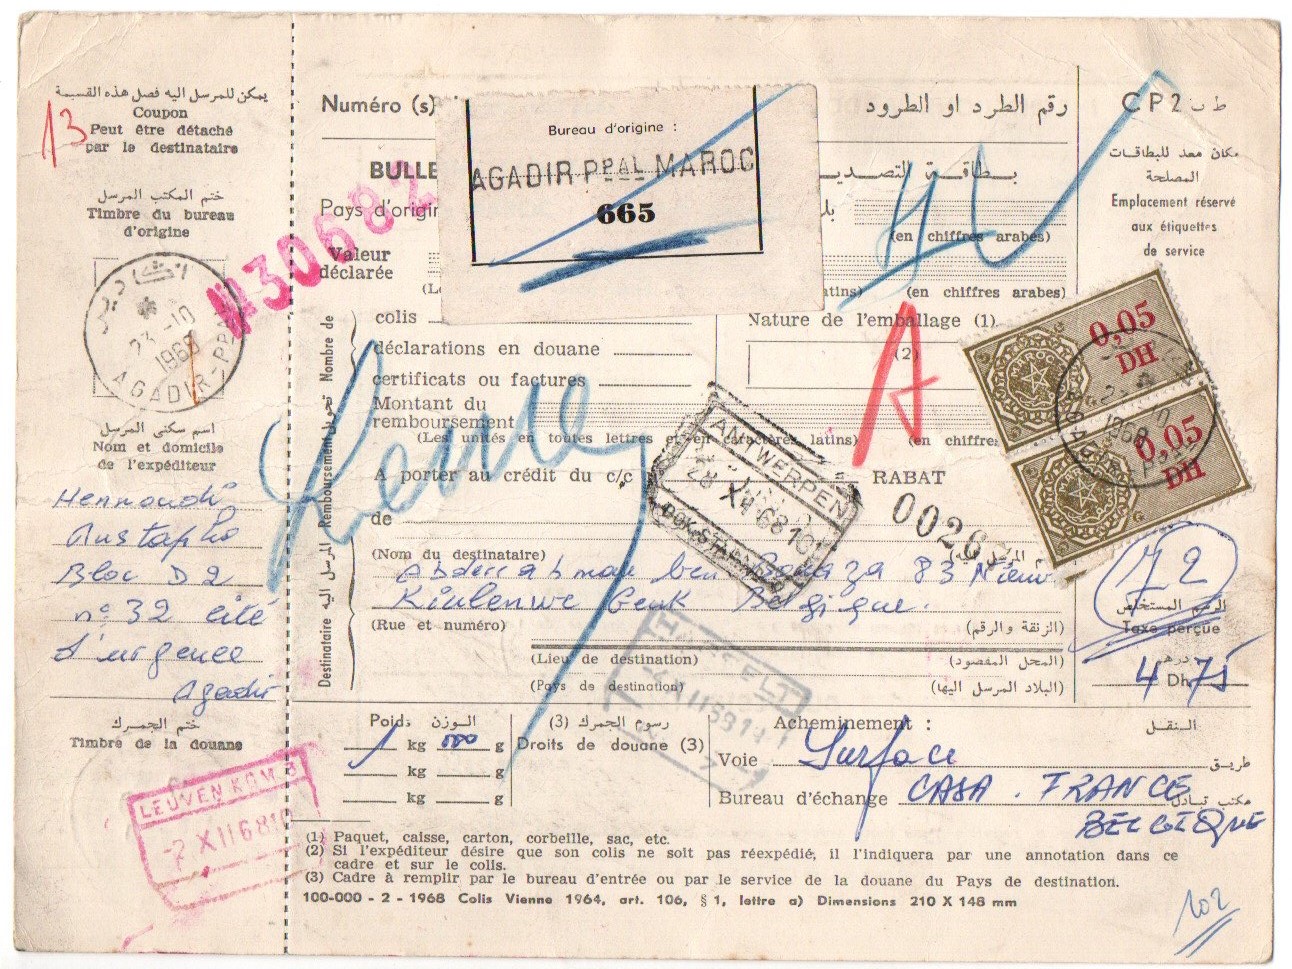 يمكن للمرسل اليه فصل هذه القسيمة
Coupon
Peut être détaché
par le destinataire
13
ختم المكتب المرسل
Timbre du bureau
d'origine
23-10
1968
AGADIR-PPAL
اسم سكنى المرسل
Nom et domicile
de l'expéditeur
Bloc D2
n° 32 cité
d'urgence
Agadir
ختم الجمرك
Timbre de la douane
LEUVEN KOM 3
-7 XII 68 10
Numéro (s)
رقم الطرد او الطرود
CP2 ط ب
Bureau d'origine :
AGADIR PPAL MAROC
665
BULLE
بطاقة التصدير
مكان معد للبطاقات
المصلحة
Emplacement réservé
aux étiquettes
de service
Pays d'origin
(en chiffres arabes)
№ 30682
Valeur
déclarée
(en chiffres arabes)
latins)
colis
Nature de l'emballage (1)
(2)
déclarations en douane
certificats ou factures
Montant du
remboursement
(Les unités en toutes lettres et en caractères latins)
(en chiffre
A
0,05
DH
0,05
DH
Nombre de
Remboursement
A porter au crédit du c/c
RABAT
de
ANTWERPEN
28 XI 68 10
HASSELT
(Nom du destinataire)
83 Nieuw
Genk Belgique.
(Rue et numéro)
(الزنقة والرقم)
(Lieu de destination)
(المحل المقصود)
(Pays de destination)
(البلاد المرسل اليها)
Destinataire المرسل اليه
72
الرقم المستخلص
Taxe perçue
درهم
4 Dh 75
Poids الوزن
1 kg 000 g
kg g
kg g
(3) رسوم الجمرك
Droits de douane (3)
Acheminement :
التنقل
Voie Surface طريق
Bureau d'échange CASA. FRANCE مكتب تبادل
BELGIQUE
(1) Paquet, caisse, carton, corbeille, sac, etc.
(2) Si l'expéditeur désire que son colis ne soit pas réexpédié, il l'indiquera par une annotation dans ce
cadre et sur le colis.
(3) Cadre à remplir par le bureau d'entrée ou par le service de la douane du Pays de destination.
100-000 - 2 - 1968 Colis Vienne 1964, art. 106, § 1, lettre a) Dimensions 210 X 148 mm
102